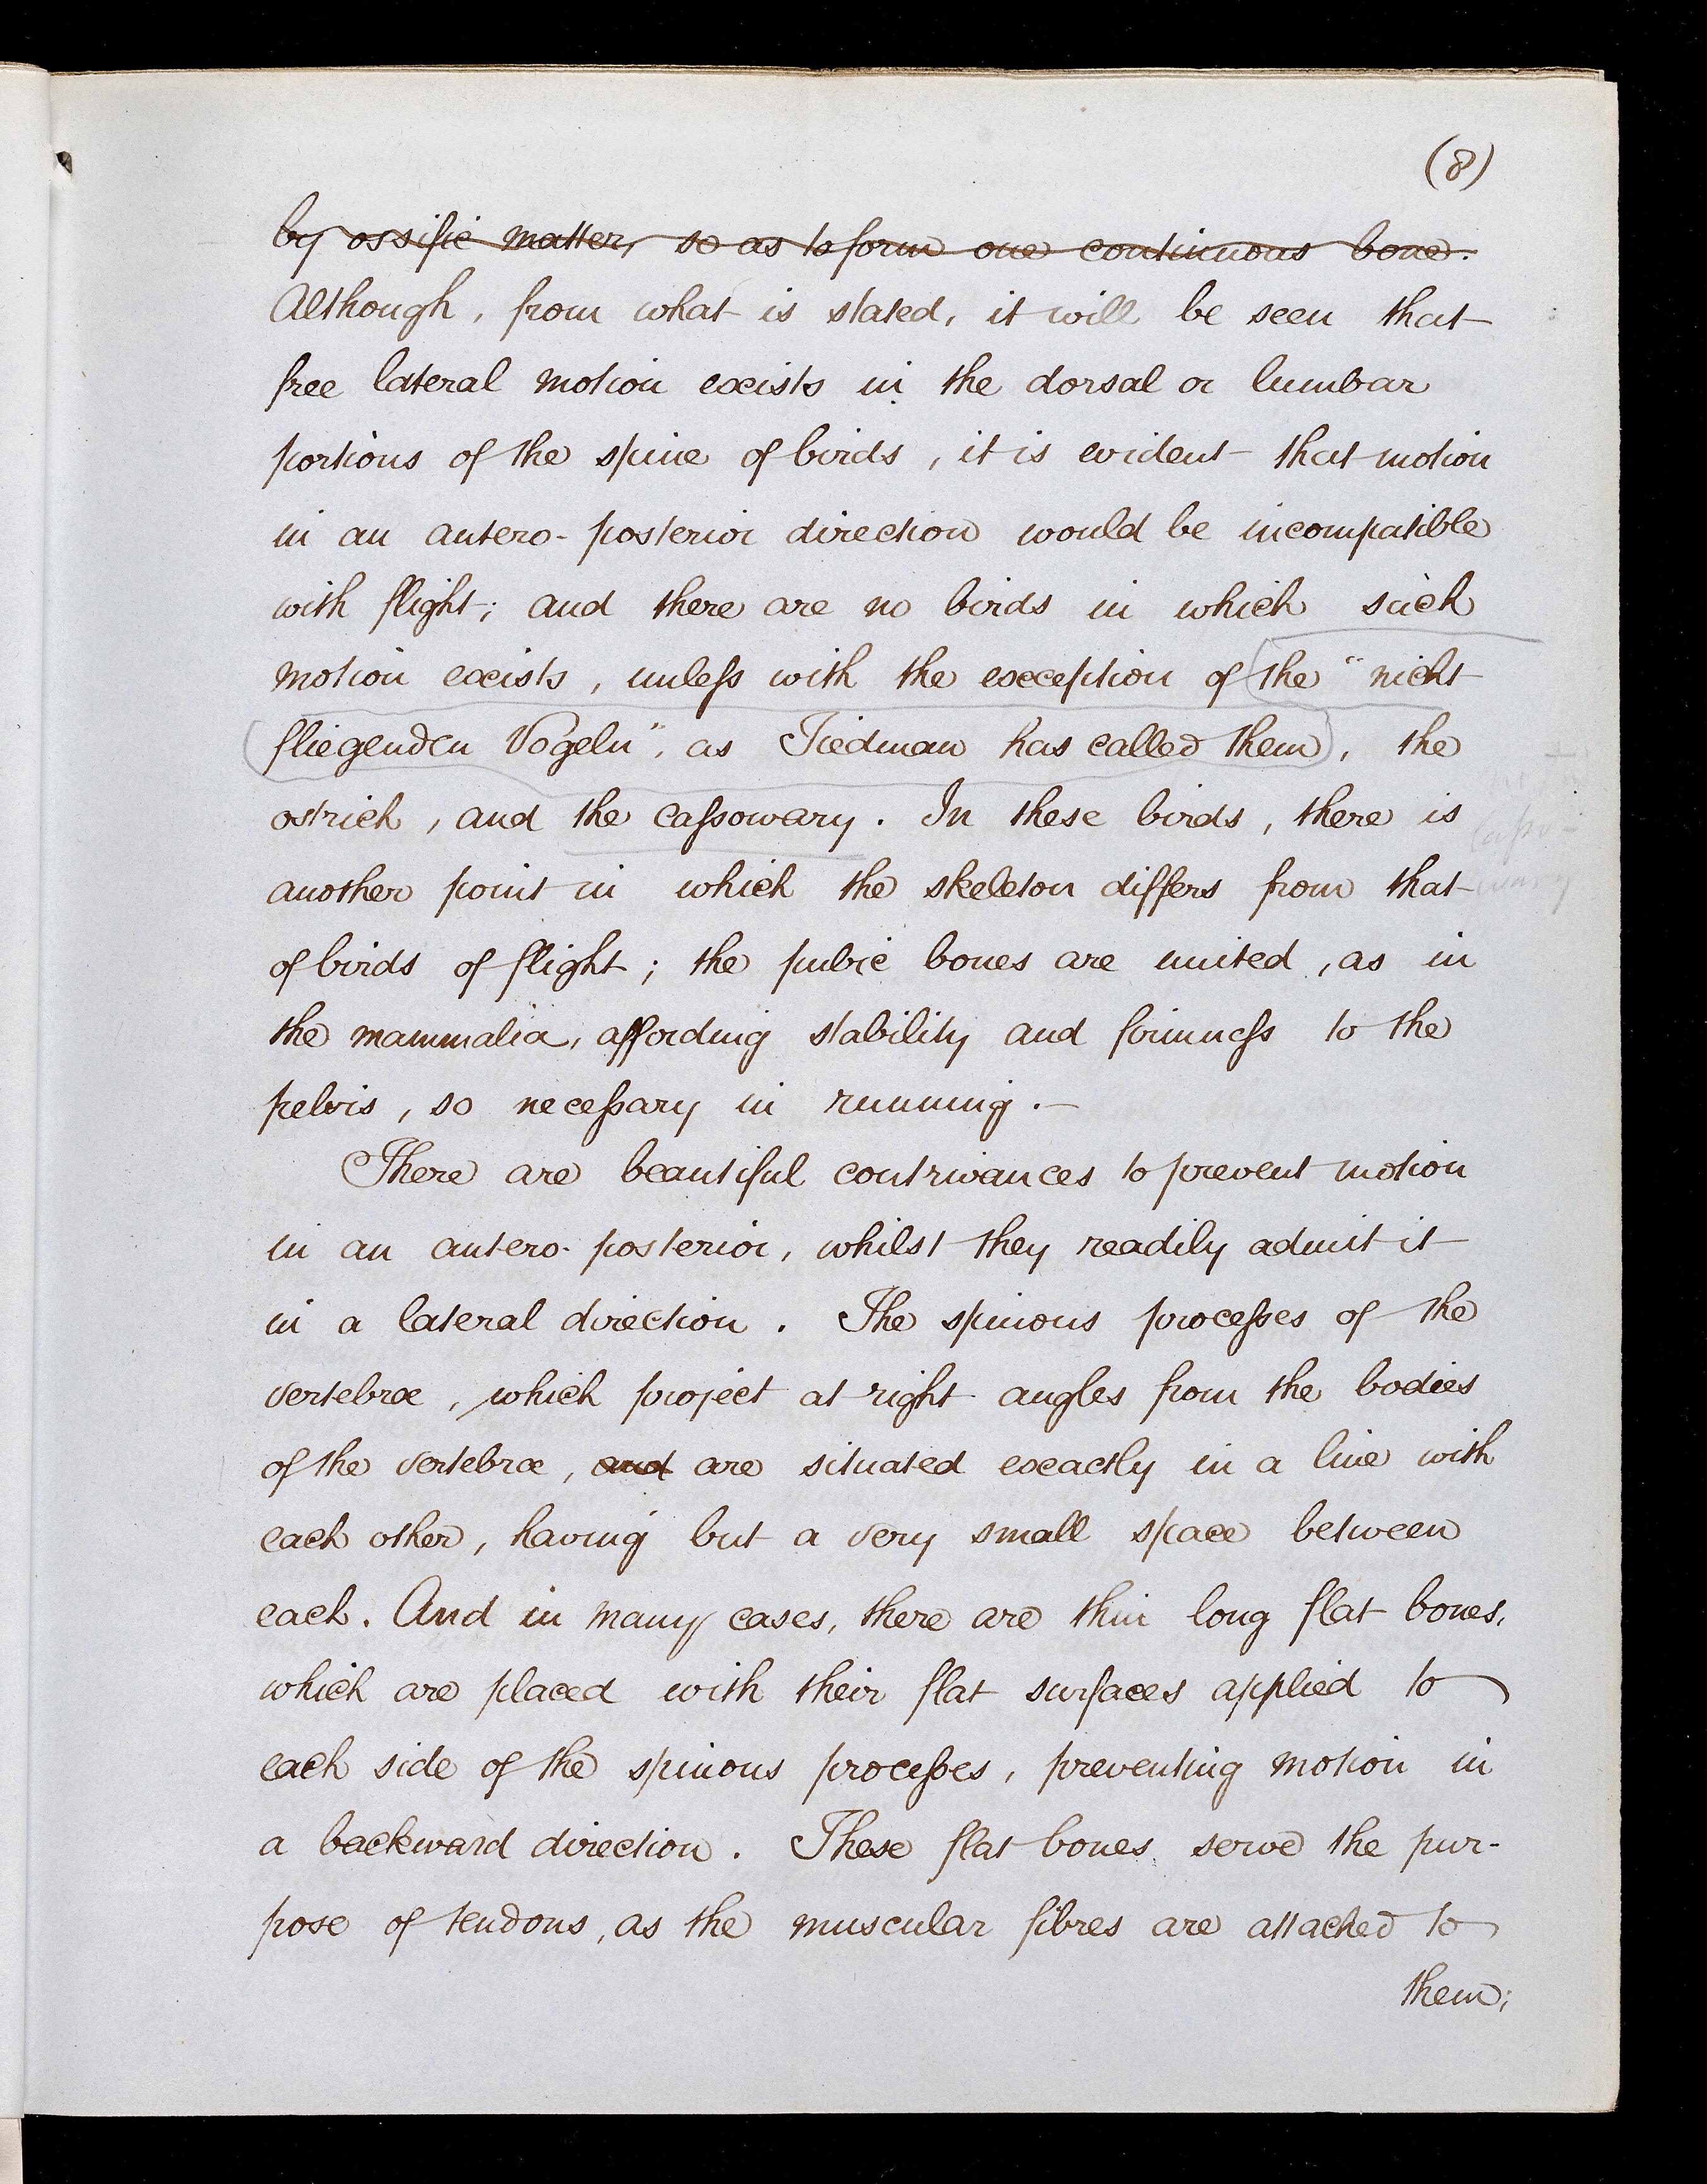 (8)
by ossific matter, so as to form one continuous bone.
Although, from what is stated, it will be seen that
free lateral motion exists in the dorsal or lumbar
portions of the spine of birds, it is evident that motion
in an antero-posterior direction would be incompatible
with flight; and there are no birds in which such
motion exists, unless with the exception of the "nicht
fliegenden Vögeln", as Tiedman has called them, the
ostrich, and the cassowary. In these birds, there is
another point in which the skeleton differs from that
of birds of flight; the pubic bones are united, as in
the mammalia, affording stability and firmness to the
pelvis, so necessary in running.—
There are beautiful contrivances to prevent motion
in an antero-posterior, whilst they readily admit it
in a lateral direction. The spinous processes of the
vertebræ, which project at right angles from the bodies
of the vertebræ, and are situated exactly in a line with
each other, having but a very small space between
each. And in many cases, there are thin long flat bones,
which are placed with their flat surfaces applied to
each side of the spinous processes, preventing motion in
a backward direction. These flat bones serve the pur-
pose of tendons, as the muscular fibres are attached to
them;